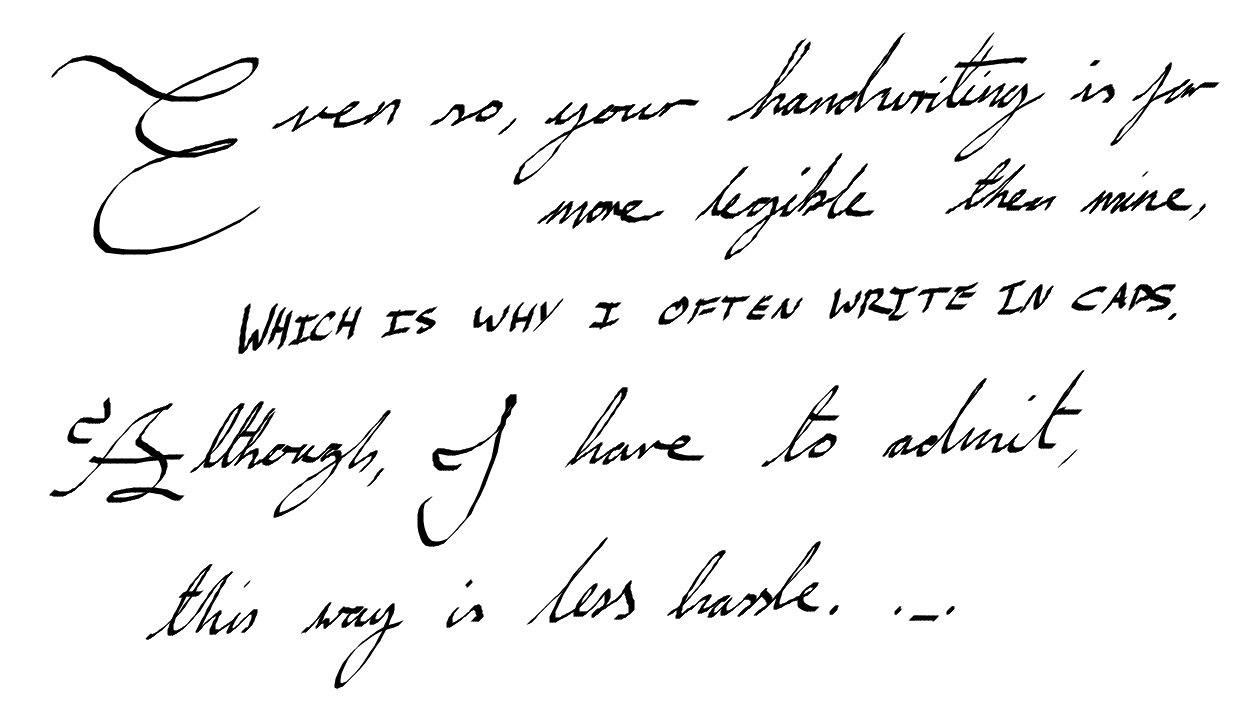 Even so, your handwriting is far
more legible then mine,
WHICH IS WHY I OFTEN WRITE IN CAPS.
Although, I have to admit,
this way is less hassle. ._.